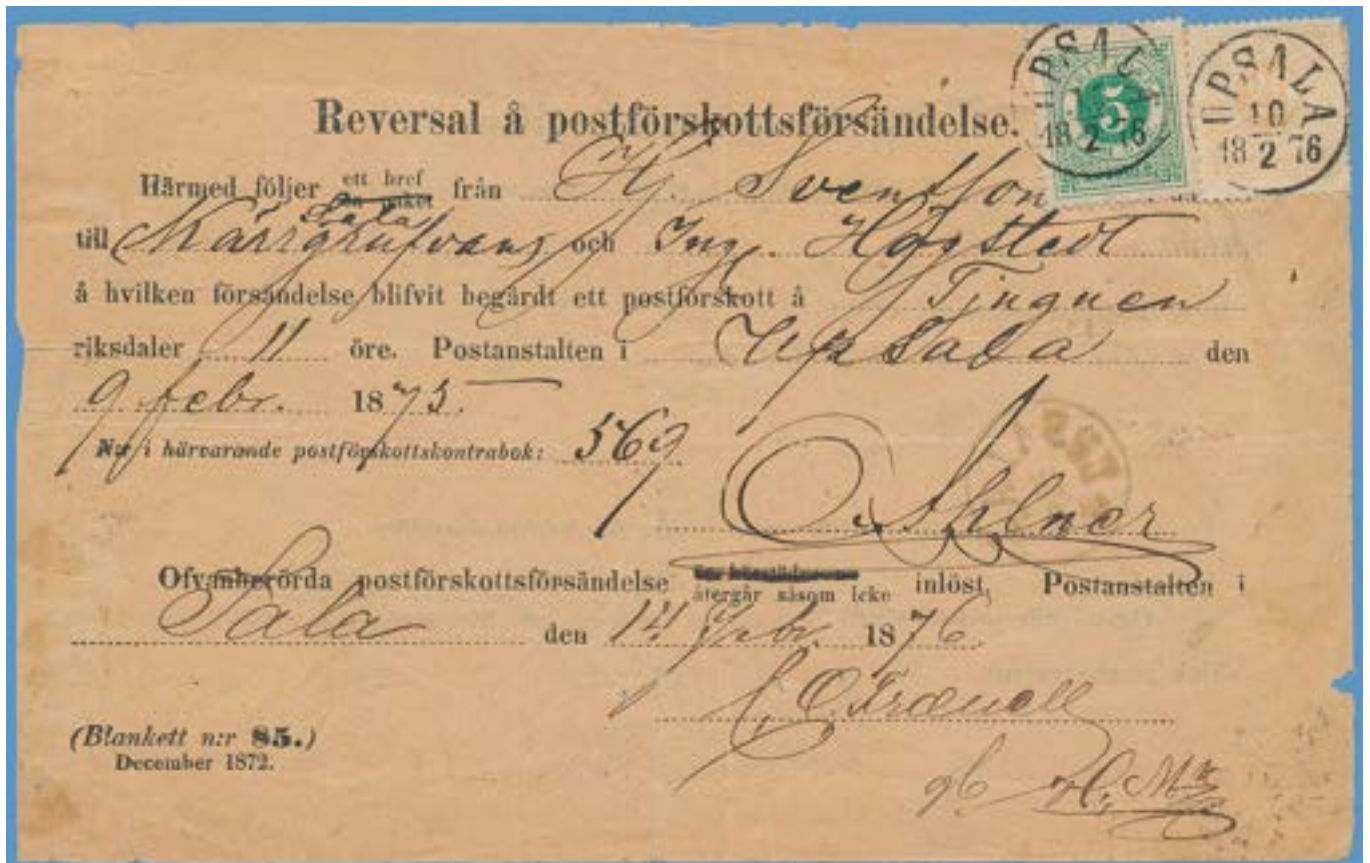 UPSALA
18 2 76
5
UPSALA
10
18 2 76
Reversal å postförskottsförsändelse.
Härmed följer ett bref från Hj. Sventson
Sala
till Kärrgrufvans och Ing. Högstedt
å hvilken försändelse blifvit begärdt ett postförskott å Tjuguen
riksdaler 11 öre. Postanstalten i Upsala den
9 febr. 1875.
N:r i härvarande postförskottskontrabok: 569
Ofvanberörda postförskottsförsändelse återgår såsom icke inlöst. Postanstalten i
Sala den 14 Febr. 1876.
(Blankett n:r 85.)
December 1872.